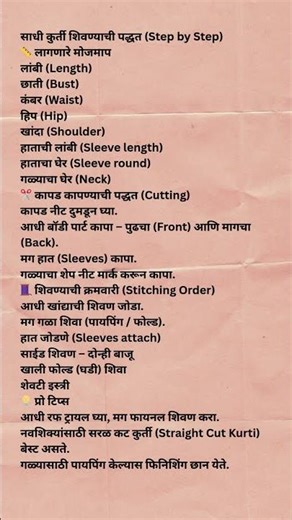 साधी कुर्ती शिवण्याची पद्धत (Step by Step)
📏 लागणारे मोजमाप
लांबी (Length)
छाती (Bust)
कंबर (Waist)
हिप (Hip)
खांदा (Shoulder)
हाताची लांबी (Sleeve length)
हाताचा घेर (Sleeve round)
गळ्याचा घेर (Neck)
✂️ कापड कापण्याची पद्धत (Cutting)
कापड नीट दुमडून घ्या.
आधी बॉडी पार्ट कापा – पुढचा (Front) आणि मागचा
(Back).
मग हात (Sleeves) कापा.
गळ्याचा शेप नीट मार्क करून कापा.
🧵 शिवण्याची क्रमवारी (Stitching Order)
आधी खांद्याची शिवण जोडा.
मग गळा शिवा (पायपिंग / फोल्ड).
हात जोडणे (Sleeves attach)
साईड शिवण – दोन्ही बाजू
खाली फोल्ड (घडी) शिवा
शेवटी इस्त्री
💡 प्रो टिप्स
आधी रफ ट्रायल घ्या, मग फायनल शिवण करा.
नवशिक्यांसाठी सरळ कट कुर्ती (Straight Cut Kurti)
बेस्ट असते.
गळ्यासाठी पायपिंग केल्यास फिनिशिंग छान येते.